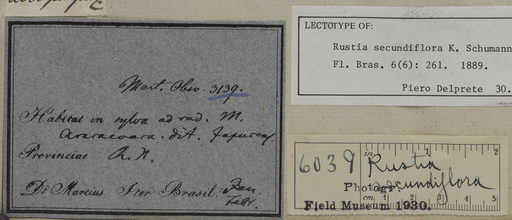 Mart. Obs. 3139.
Habitat in sylva ad rad. M.
Araracoara. dit. Japurens.
Provinciae R. N.
Dr Martius Iter Brasil. Jan.
Febr.
LECTOTYPE OF:
Rustia secundiflora K. Schumann
Fl. Bras. 6(6): 261. 1889.
Piero Delprete 30.
6039 Rustia
secundiflora
Photog
Field Museum 1930.
cm. 1 2 3 4 5